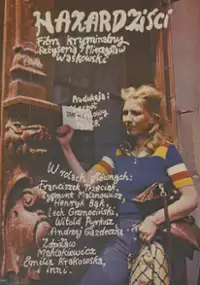 HAZARDZIŚCI
Film kryminalny
Reżyseria: Mieczysław
Waśkowski
Produkcja:
W rolach głównych:
Franciszek Trzeciak,
Zygmunt Malanowicz,
Henryk Bąk,
Lech Grzmociński,
Witold Pyrkosz
Andrzej Gazdeczka,
Zdzisław
Maklakiewicz
Emilia Krakowska,
i inni.